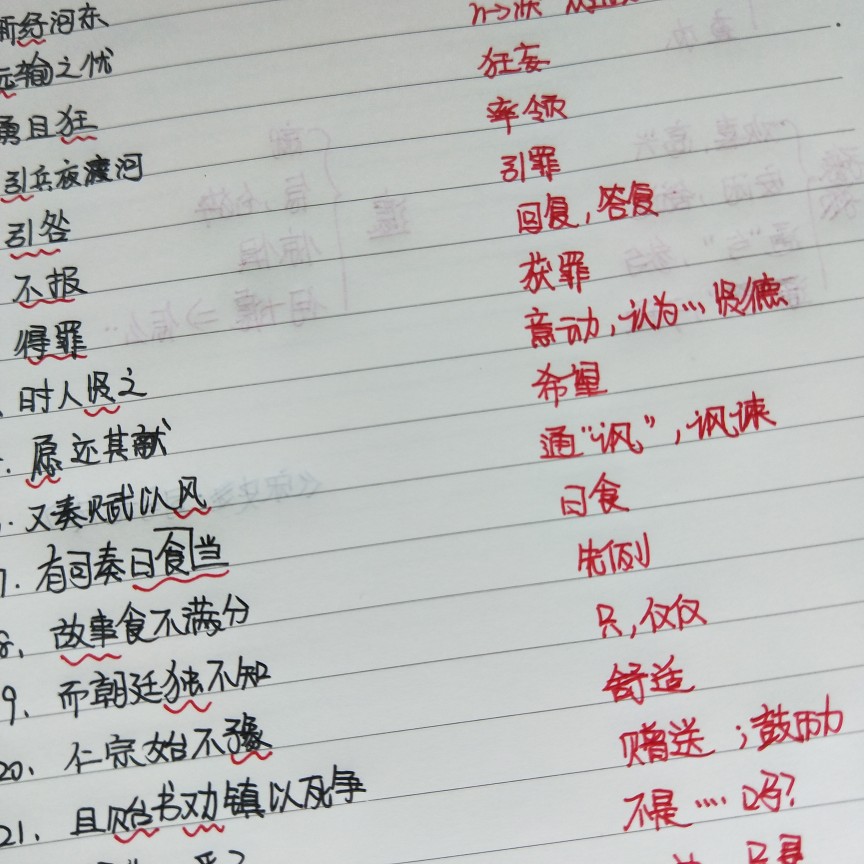 新经河东
运输之忧
勇且狂 狂妄
引兵夜渡河 率领
引咎 引罪
不报 回复,答复
得罪 获罪
时人贤之 意动,认为…贤德
原还其献 希望
又奏赋以风 通“讽”,讽谏
7. 有司奏日食当 日食
8、故事食不满分 先例
9、而朝廷独不知 只,仅仅
20、仁宗始不豫 舒适
21、且贻书劝镇以死争 赠送;鼓励
不是……吗?